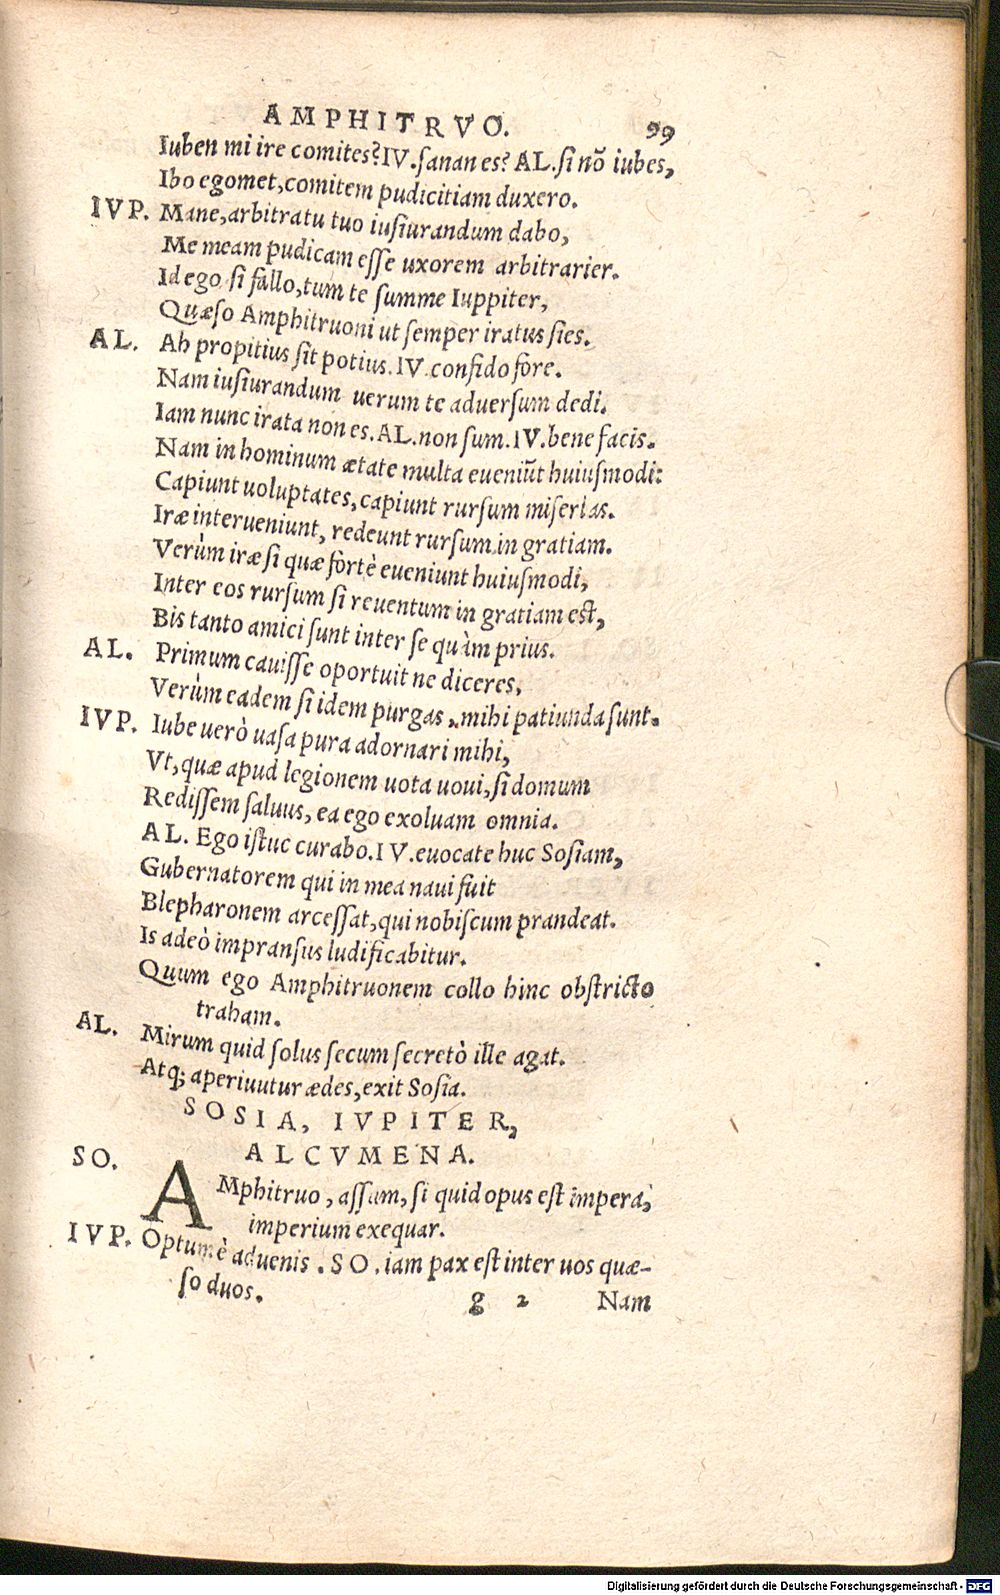 AMPHITRVO. 99
Iuben mi ire comites? IV. sanan es? AL. si nō iubes,
Ibo egomet, comitem pudicitiam duxero.
IVP. Mane, arbitratu tuo iusiurandum dabo,
Me meam pudicam esse uxorem arbitrarier.
Id ego si fallo, tum te summe Iuppiter,
Quæso Amphitruoni ut semper iratus sies.
AL. Ah propitius sit potius. IV. confido fore.
Nam iusiurandum uerum te aduersum dedi.
Iam nunc irata non es. AL. non sum. IV. bene facis.
Nam in hominum ætate multa eueniūt huiusmodi:
Capiunt uoluptates, capiunt rursum miserias.
Iræ interueniunt, redeunt rursum in gratiam.
Verùm iræ si quæ fortè eueniunt huiusmodi,
Inter eos rursum si reuentum in gratiam est,
Bis tanto amici sunt inter se quàm prius.
AL. Primum cauisse oportuit ne diceres,
Verùm eadem si idem purgas, mihi patiunda sunt.
IVP. Iube uerò uasa pura adornari mihi,
Vt, quæ apud legionem uota uoui, si domum
Redissem saluus, ea ego exoluam omnia.
AL. Ego istuc curabo. IV. euocate huc Sosiam,
Gubernatorem qui in mea naui fuit
Blepharonem arcessat, qui nobiscum prandeat.
Is adeò impransus ludificabitur.
Quum ego Amphitruonem collo hinc obstricto
traham.
AL. Mirum quid solus secum secretò ille agat.
Atq; aperiuutur ædes, exit Sosia.
SOSIA, IVPITER,
ALCVMENA.
SO. AMphitruo, assum, si quid opus est impera,
imperium exequar.
IVP. Optumè aduenis. SO. iam pax est inter uos quæ-
so duos.
g 2 Nam
Digitalisierung gefördert durch die Deutsche Forschungsgemeinschaft - DFG